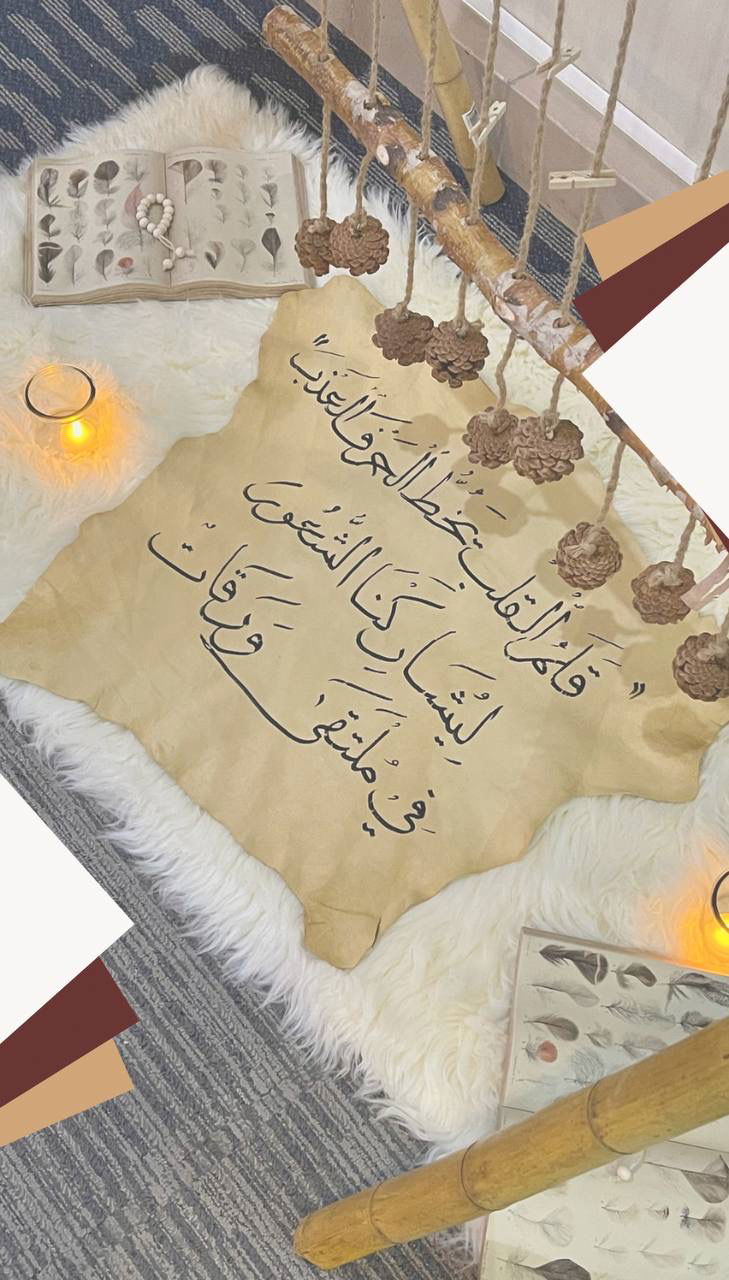 "قَلَمُ القَلب يَخُطُّ الحَرفَ العَذب"
لِيُشَارِكنَا الشُّعُور
فِي مُلتَقَى وَرَقَات